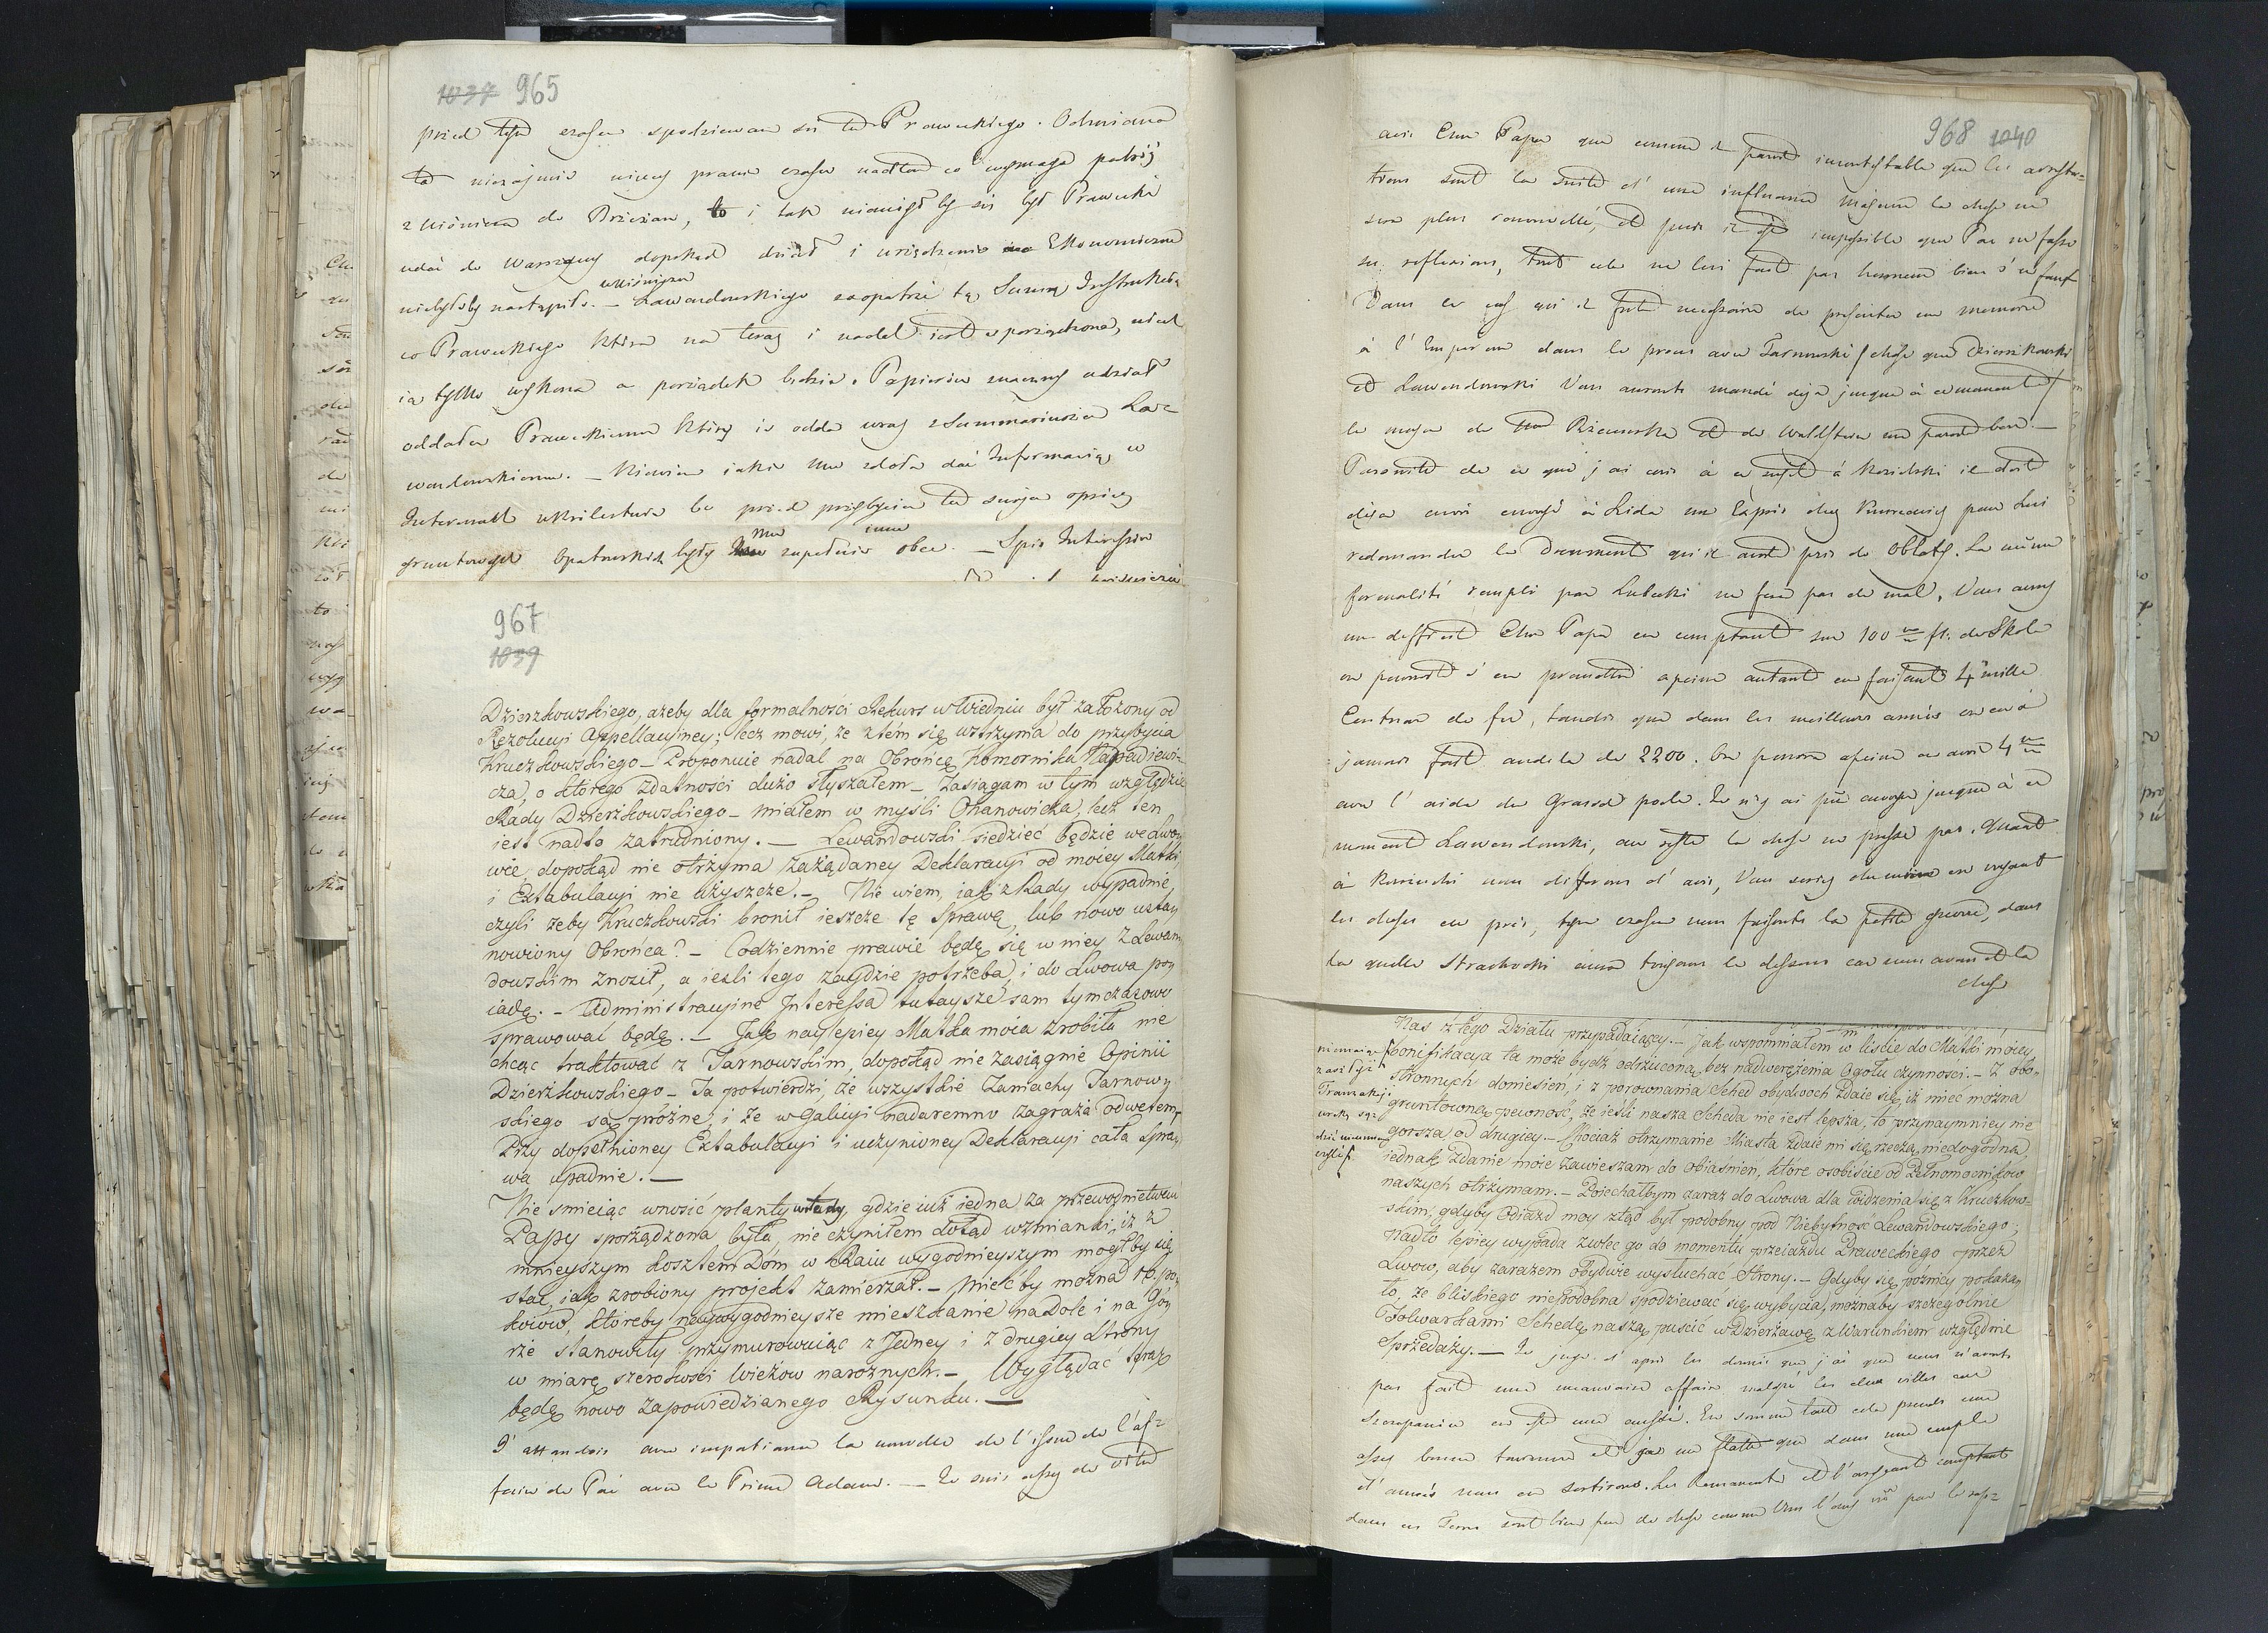 1037 965
przed tym czasem spodziewam się tu Praweckiego. Odmiana
ta niezajmie więcej prawie czasu nadto co wymaga podróż
z Wiśnicza do Brzezan, to i tak niemógłby się był Prawecki
udać do Warszawy dopokąd dział i urządzenie Ekonomiczne
niebyłoby nastąpiło. — Lawendowskiego zaopatrzę tą samą Instrukcią
co Praweckiego która na teraz i nadal jest sporządzona, niech
ią tylko wykona a porządek będzie. Papierów znaczny udział
oddałem Praweckiemu który ie odda wraz z Summariuszem Law=
wendowskiemu. — Niewiem jakie mu zdoła dać Informacią o
Interessach bo przed przybyciem tu swojem oprócz
gruntowych Opatowskich były mu inne zupełnie obce. — Spis Interessów
967
1039
Dzierzkowskiego, ażeby dla formalności Rekurs w Wiedniu był założony od
Rezolucyi Appellacyiney; lecz mowi, że z tém się wstrzyma do przybycia
Kruczkowskiego — Proponuie nadal na Obrońcę Komornika Napadiewi-
cza, o którego zdatności dużo słyszałem — Zasiągam w tym względzie
Rady Dzierzkowskiego — miałem w myśli Ohanowicza, lecz ten
jest nadto zatrudniony. — Lewandowski siedzieć będzie we Lwo-
wie, dopokąd nie otrzyma zażądaney Deklaracyi od moiey Matki
i Extabulacyi nie uzyszcze. — Nie wiem, iak z Rady wypadnie,
czyli żeby Kruczkowski bronił ieszcze tę Sprawę, lub nowo usta-
nowiony Obrońca? — Codziennie prawie będę się w niey z Lewan-
dowskim znosił, a ieśli tego zaydzie potrzeba, i do Lwowa po-
iadę. — Administracyine Interessa tutaysze sam tymczasowo
sprawować będę. — Jak naylepiey Matka moia zrobiła nie
chcąc traktować z Tarnowskim, dopokąd nie zasiągnie Opinii
Dzierzkowskiego — Ta potwierdzi, że wszystkie Zamachy Tarnow-
skiego są próżne, i że w Galicyi nadaremno zagraża odwetem,
Przy dopełnioney Extabulacyi i uczynioney Deklaracyi cała Spra-
wa upadnie. —
Nie śmieiąc wnosić planty, gdzie iuż iedna za przewodnictwem
Papy sporządzona była, nie czyniłem dotąd wzmianki, iż z
mnieyszym kosztem Dóm w Raiu wygodnieyszym mogłby się
stać, iak zrobiony projekt zamierzał. — Mieć by można 18 po-
koiów, któreby naywygodnieysze mieszkanie na Dole i na Gó-
rze stanowiły przymurowuiąc z Jedney i z drugiey Strony
w miarę szerokości Wieżow narożnych. — Wyglądać teraz
będę nowo zapowiedzianego Rysunku. —
J'attendois avec impatience la nouvelle de l'issue de l'af=
faire de Paï avec le Prince Adam. — Je suis assez de votre
968 1040
avis Cher Papa que comme il paroit incontestable que les arresta=
tions sont la suite d'une influence majeure la chose ne
sera plus renouvellée, et puis il est impossible que Pac ne fasse
ses reflexions, tout cela ne lui fait pas honneur bien s'en faut
Dans le cas qu'il fut necessaire de presenter un memoire
à l'Empereur dans le proces avec Tarnowski / chose que Dzierzkowski
et Lawendowski Vous auront mandé deja jusque à ce moment /
le moyen de Rzewuska et de Waldstein me paroit bon. —
Ensuite de ce que j'ai ecrit à ce sujet à Kozielski il doit
deja avoir envoyé à Lida un Exprès chez pour Lui
redemander le Document qu'il avoit pris de Oblatz. La même
formalité rempli par Lubecki ne fera pas de mal. Vous aurez
un deficit Cher Papa en comptant sur 100 m fl. de Skole
on pourroit s'en promettre apeine autant en faisant 4 mille
Centnar de fer, tandis que dans les meilleures années on en a
jamais fait audela de 2200. On pourra apeine en avoir 4 m
avec l'aide du Grand poele. Je n'y ai pû envoyer jusque à ce
moment Lawendowski, au reste la chose ne presse pas. Quant
à nous differons d'avis, Vous seriez du mien en voyant
les choses en près, tym czasem nous faisons la petite guerre, dans
la quelle Strachocki aura toujours le dessous car nous avons et la
chose
Nas z tego Działu przypadaiącey. — Jak wspomniałem w liście do Matki moiey
bonifikacya ta może bydź odrzuconą bez nadwerężenia Ogółu czynności. — Z obo-
stronnych doniesien, i z porownania Sched obydwoch zdaie się, iż mieć można
gruntowną pewność, że ieśli nasza Scheda nie iest lepsza, to przynaymniey nie
gorsza od drugiey. — Chociaż otrzymanie Miasta zdaie mi się rzeczą niedogodną,
iednak zdanie moie zawieszam do obiaśnien, które osobiście od Pełnomocnikow
naszych otrzymam. — Poiechałbym zaraz do Lwowa dla widzenia się z Kruczkow-
skim, gdyby Odiazd moy ztąd był podobny pod Niebytność Lewandowskiego;
nadto lepiey wypada zwlec go do momentu przeiazdu Praweckiego przez
Lwow, aby zarazem obydwie wysłuchać Strony. — Gdyby się pózniey pokaza-
ło, że bliskiego niepodobna spodziewać się wybycia, możnaby szczególnie
Folwarkami Schedę naszą puścić w Dzierżawę z Warunkiem względnie
Sprzedaży. — Je juge d'après les donnés que j'ai que nous n'avons
pas fait une mauvaise affaire malgré les deux villes car
Szczepanica en est une aussi. En somme tout cela prendra une
assez bonne tournure et je me flatte que dans une couple
d'années nous en sortirons. Les Remanents et l'argent comptant
dans ces Terres sont bien peu de chose comme Vous l'avez vû par le rap=